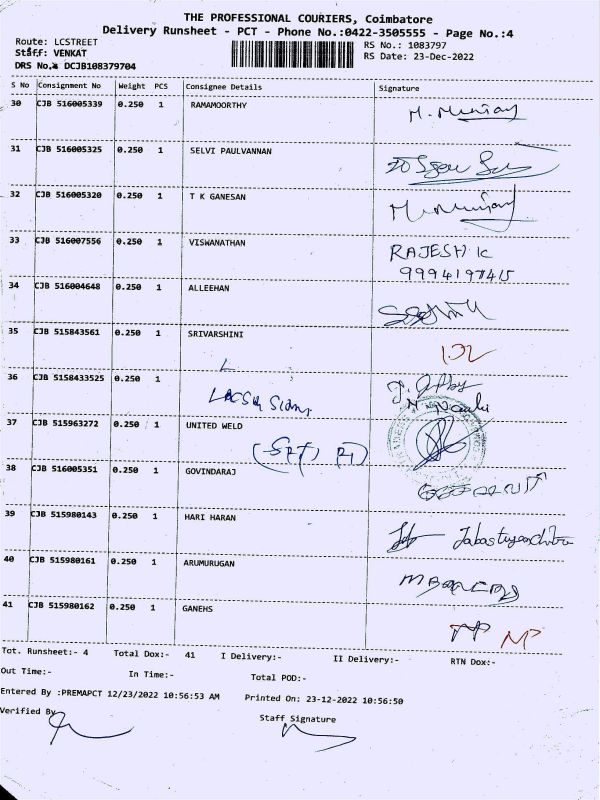 THE PROFESSIONAL COURIERS, Coimbatore
Delivery Runsheet - PCT - Phone No.:0422-3505555 - Page No.:4
Route: LCSTREET
RS No.: 1083797
Staff: VENKAT
RS Date: 23-Dec-2022
DRS No. DCJB108379704
S No Consignment No Weight PCS Consignee Details Signature
30 CJB 516005339 0.250 1 RAMAMOORTHY
31 CJB 516005325 0.250 1 SELVI PAULVANNAN
32 CJB 516005320 0.250 1 T K GANESAN
33 CJB 516007556 0.250 1 VISWANATHAN RAJESH K
9994197415
34 CJB 516004648 0.250 1 ALLEEHAN
35 CJB 515843561 0.250 1 SRIVARSHINI
36 CJB 5158433525 0.250 1
37 CJB 515963272 0.250 1 UNITED WELD
38 CJB 516005351 0.250 1 GOVINDARAJ
39 CJB 515980143 0.250 1 HARI HARAN
40 CJB 515980161 0.250 1 ARUMURUGAN
41 CJB 515980162 0.250 1 GANEHS
Tot. Runsheet:- 4 Total Dox:- 41 I Delivery:- II Delivery:- RTN Dox:-
Out Time:- In Time:- Total POD:-
Entered By :PREMAPCT 12/23/2022 10:56:53 AM Printed On: 23-12-2022 10:56:50
Verified By
Staff Signature